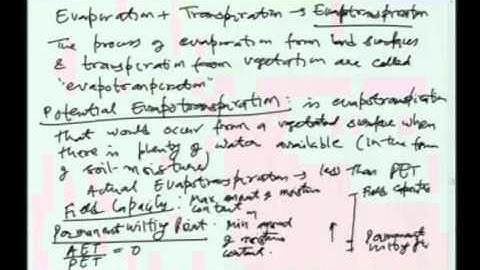 Evaporation + Transpiration → Evapotranspiration
The process of evaporation from land surfaces
& transpiration from vegetation are called
"evapotranspiration"
Potential Evapotranspiration: is evapotranspiration
that would occur from a vegetated surface when
there is plenty of water available (in the form
of soil-moisture)
Actual Evapotranspiration → less than PET
Field Capacity: Max amount of moisture content
Field Capacity
Permanent Wilting Point: Min amount of moisture content.
AET/PET = 0
Permanent
wilting pt